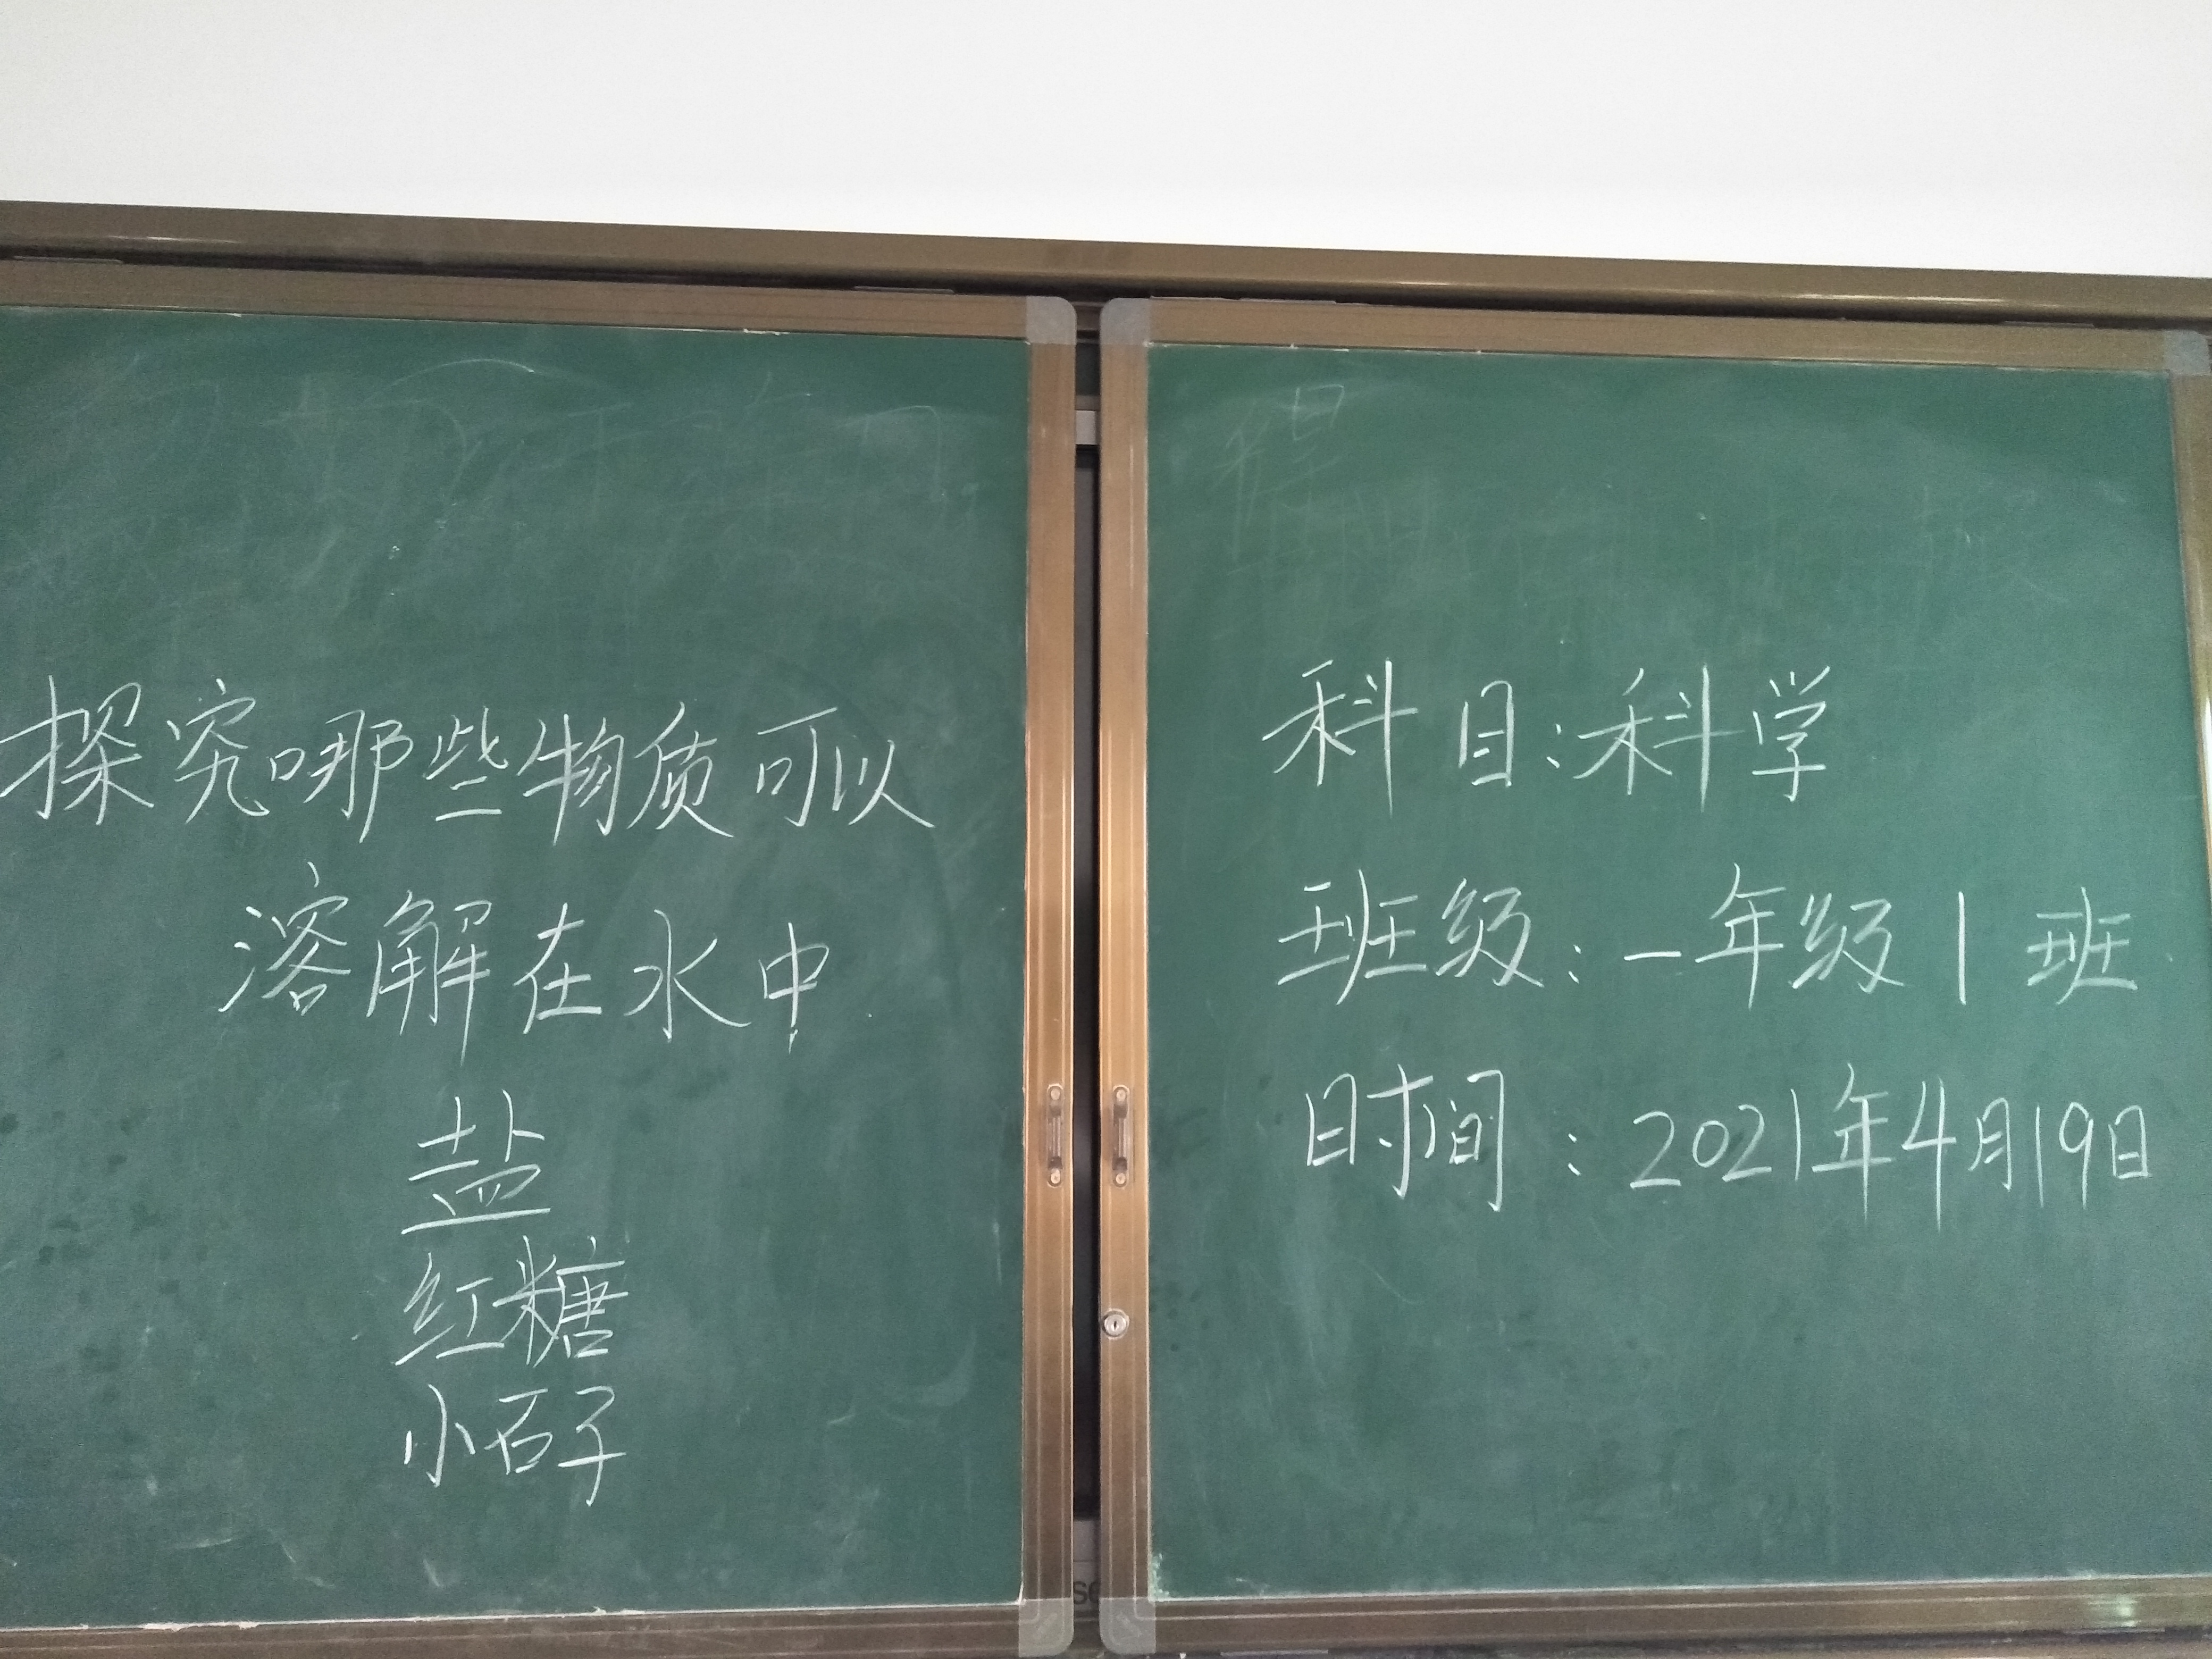 探究哪些物质可以
溶解在水中
盐
红糖
小石子
科目:科学
班级:一年级1班
时间:2021年4月19日